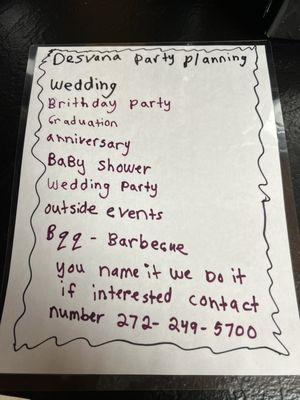 Desvana party planning
Wedding
Brithday party
Graduation
anniversary
BaBy shower
Wedding Party
outside events
Bqq - Barbecue
you name it we do it
if interested contact
number 272-249-5700